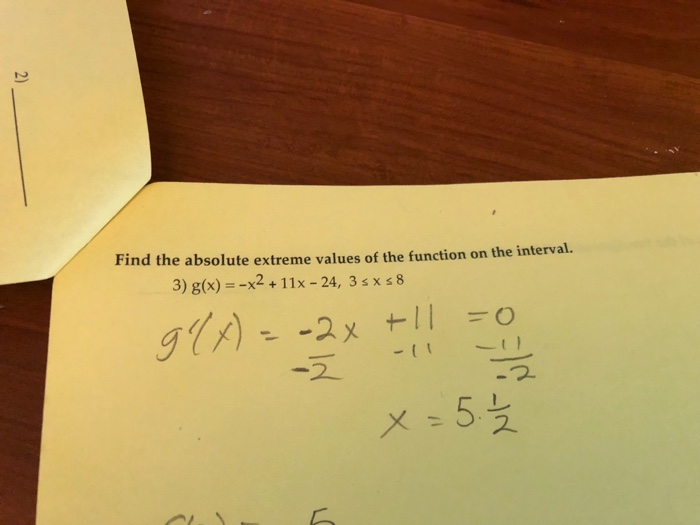 2)
Find the absolute extreme values of the function on the interval.
3) g(x) = -x² + 11x - 24, 3 ≤ x ≤ 8
g'(x) = -2x +11 = 0
-2 -11 -11
-2
x = 5 1/2